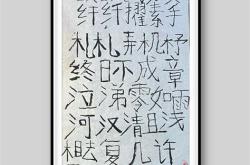 纤纤擢素手
札札弄机杼
终日不成章
泣涕零如雨
河汉清且浅
相去复几许